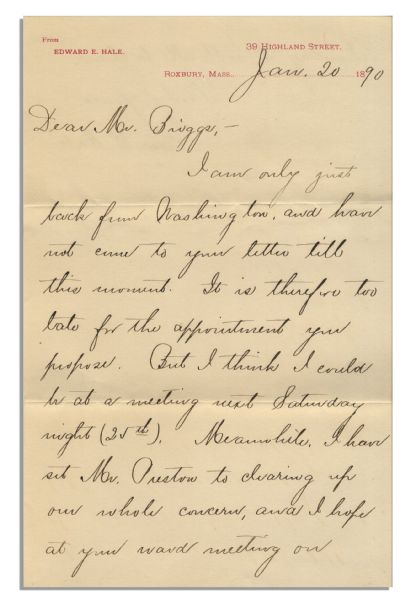 From
EDWARD E. HALE.
39 HIGHLAND STREET.
ROXBURY, MASS., Jan. 20 1890
Dear Mr. Briggs,—
I am only just
back from Washington, and have
not come to your letter till
this moment. It is therefore too
late for the appointment you
propose. But I think I could
be at a meeting next Saturday
night (25th). Meanwhile, I have
set Mr. Preston to clearing up
our whole concern, and I hope
at your ward meeting on